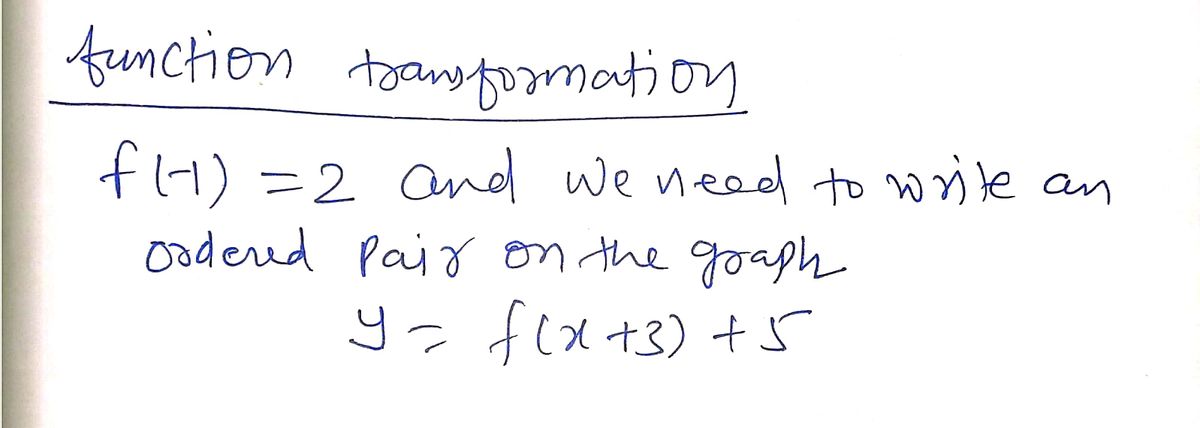 function transformation
f(-1) = 2 and we need to write an
ordered pair on the graph
y = f(x+3) + 5